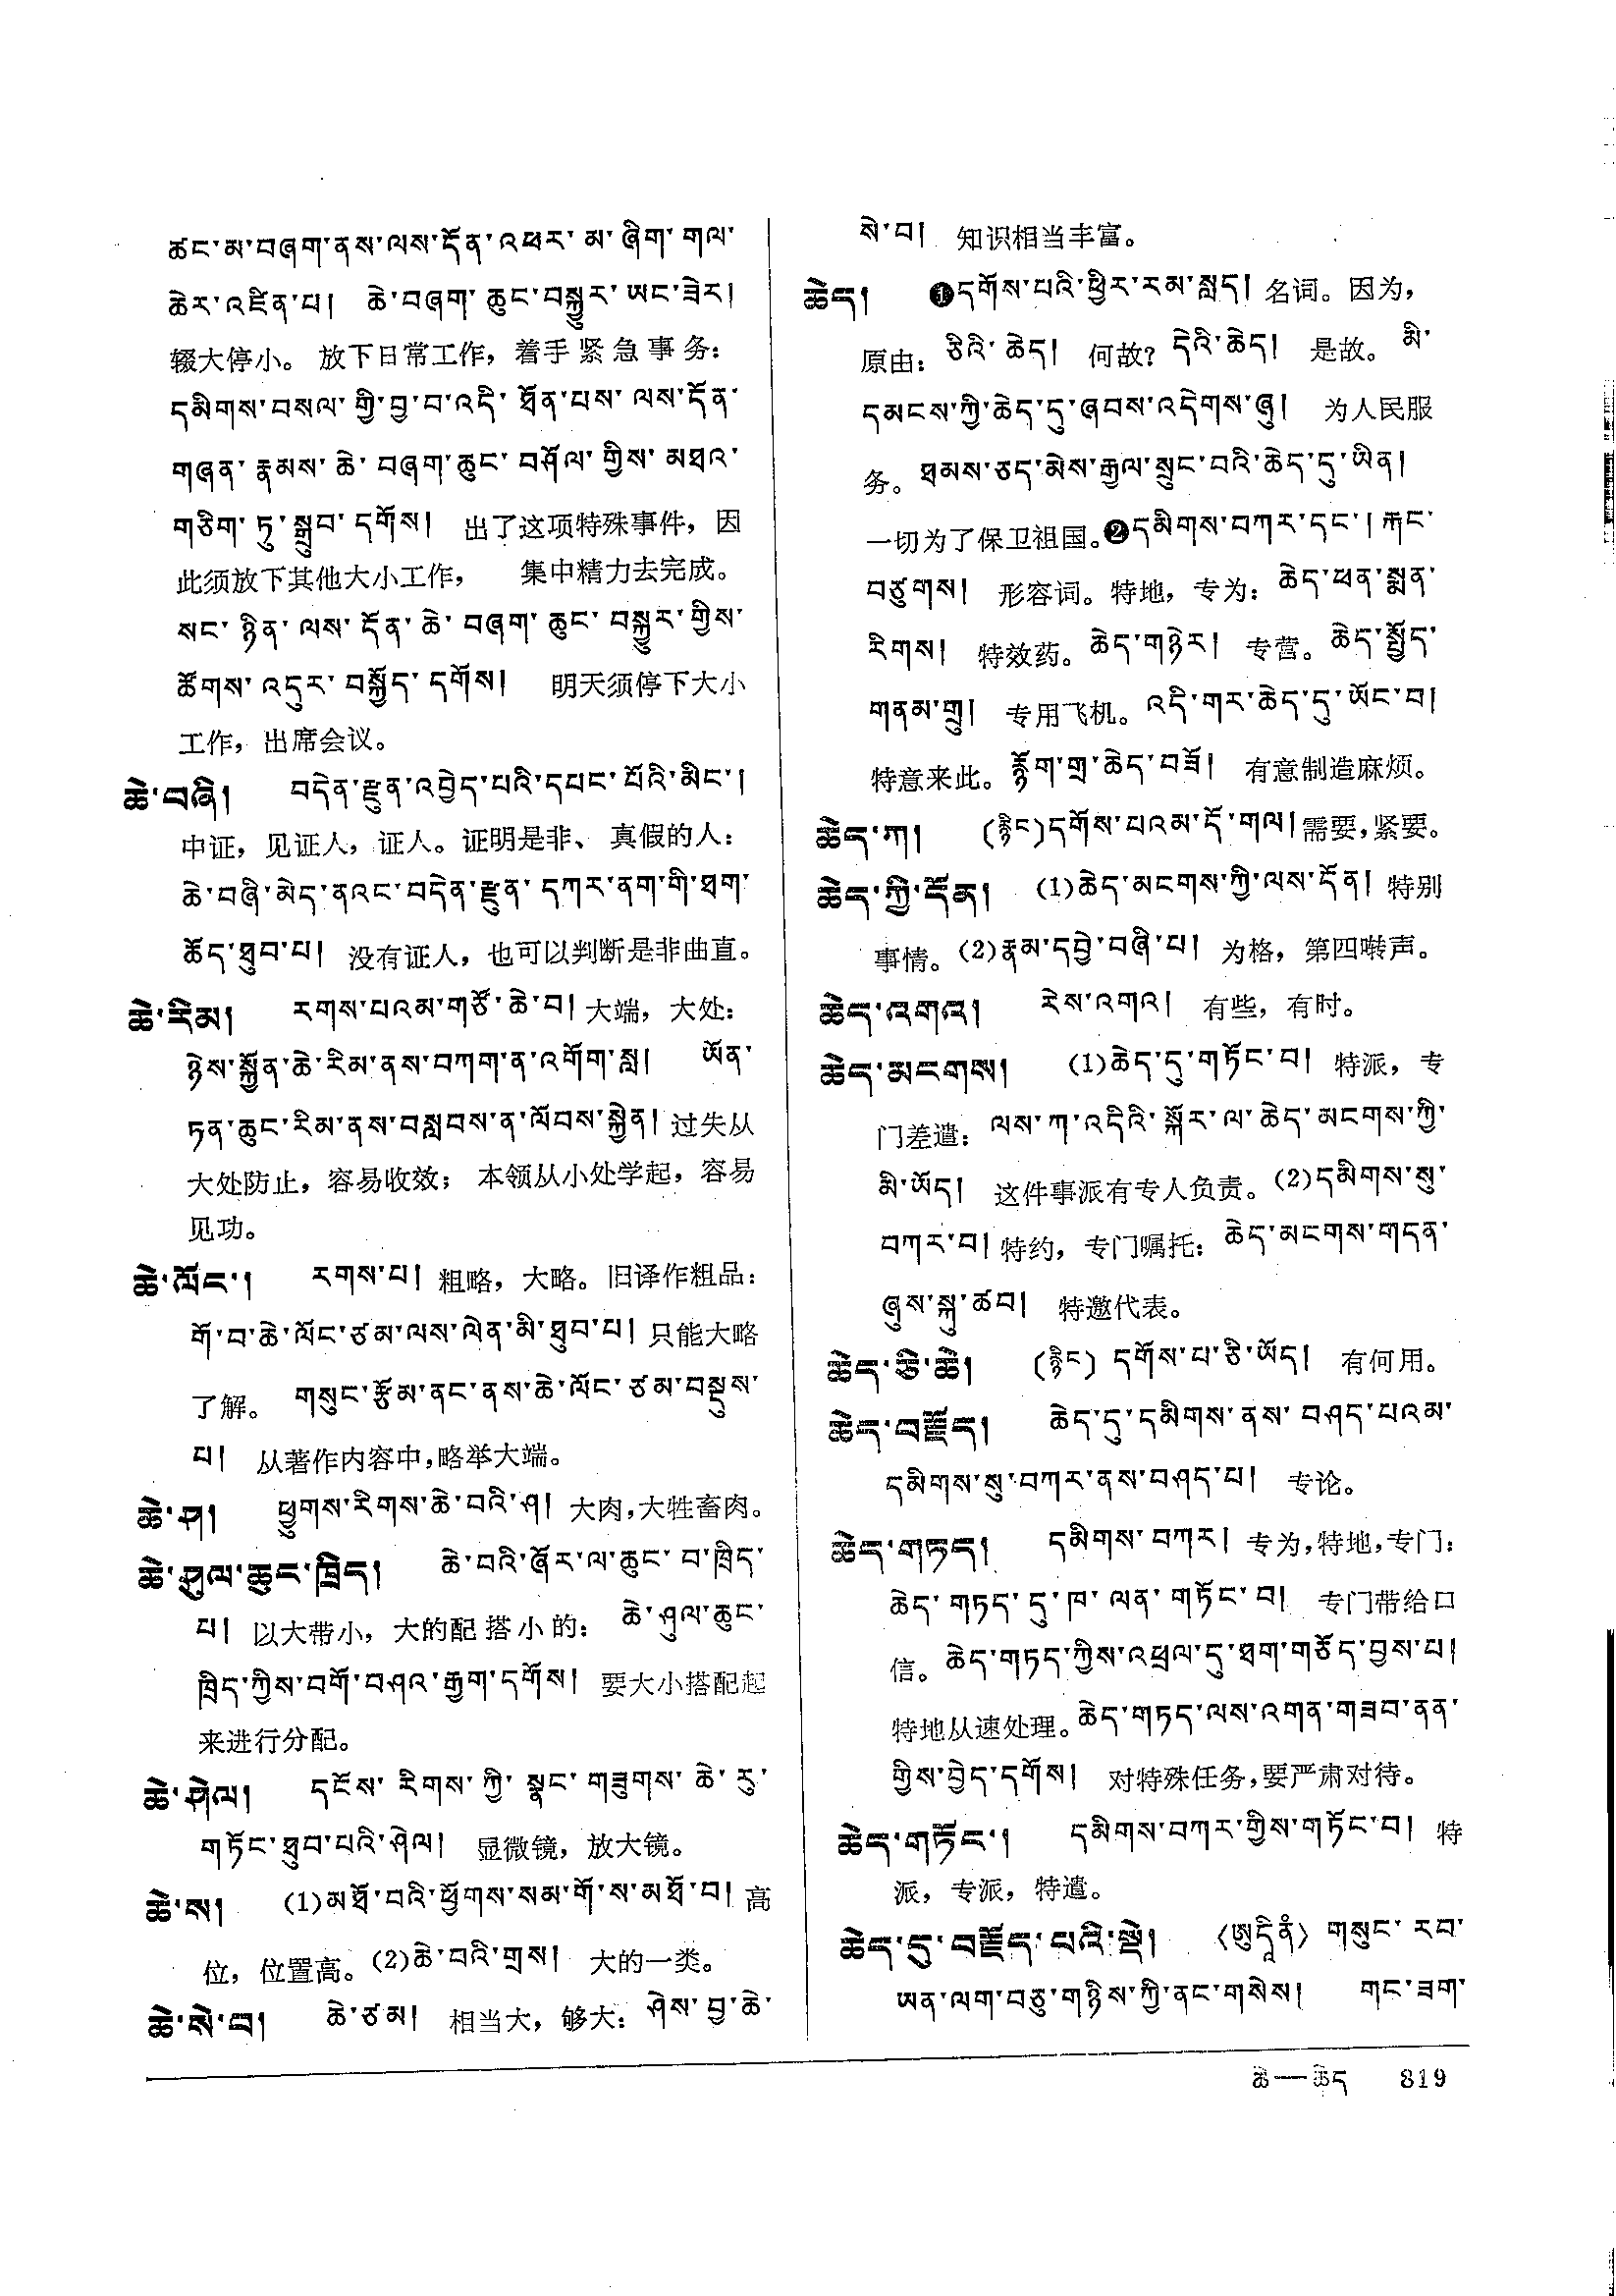 ཚང་མ་བཞག་ནས་ལས་དོན་འཕར་མ་ཞིག་གལ་
ཆེར་འཛིན་པ། ཆེ་བཞག་ཆུང་བསྐྱུར་ཡང་ཟེར།
辍大停小。放下日常工作，着手紧急事务：
དམིགས་བསལ་གྱི་བྱ་བ་འདི་ཐོན་པས་ལས་དོན་
གཞན་རྣམས་ཆེ་བཞག་ཆུང་བཤོལ་གྱིས་མཐའ་
གཅིག་ཏུ་སྒྲུབ་དགོས། 出了这项特殊事件，因
此须放下其他大小工作，集中精力去完成。
སང་ཉིན་ལས་དོན་ཆེ་བཞག་ཆུང་བསྐྱུར་གྱིས་
ཚོགས་འདུར་བསྐྱོད་དགོས། 明天须停下大小
工作，出席会议。
ཆེ་བཞི། བདེན་རྫུན་འབྱེད་པའི་དཔང་པོའི་མིང་།
中证，见证人，证人。证明是非、真假的人：
ཆེ་བཞི་མེད་ནའང་བདེན་རྫུན་དཀར་ནག་གི་ཐག་
ཆོད་ཐུབ་པ། 没有证人，也可以判断是非曲直。
ཆེ་རིམ། རགས་པའམ་གཙོ་ཆེ་བ། 大端，大处：
ཉེས་སྐྱོན་ཆེ་རིམ་ནས་བཀག་ན་འགོག་སླ། ཡོན་
ཏན་ཆུང་རིམ་ནས་བསླབས་ན་ལོབས་སྐྱེན། 过失从
大处防止，容易收效；本领从小处学起，容易
见功。
ཆེ་ལོང་། རགས་པ། 粗略，大略。旧译作粗品：
གོ་བ་ཆེ་ལོང་ཙམ་ལས་ལེན་མི་ཐུབ་པ། 只能大略
了解。 གསུང་རྩོམ་ནང་ནས་ཆེ་ལོང་ཙམ་བསྡུས་
པ། 从著作内容中，略举大端。
ཆེ་ཤ། ཕྱུགས་རིགས་ཆེ་བའི་ཤ། 大肉，大牲畜肉。
ཆེ་ཤུལ་ཆུང་ཁྲིད། ཆེ་བའི་ཞོར་ལ་ཆུང་བ་ཁྲིད་
པ། 以大带小，大的配搭小的： ཆེ་ཤུལ་ཆུང་
ཁྲིད་ཀྱིས་བགོ་བཤའ་རྒྱག་དགོས། 要大小搭配起
来进行分配。
ཆེ་ཤེལ། དངོས་རིགས་ཀྱི་སྣང་གཟུགས་ཆེ་རུ་
གཏོང་ཐུབ་པའི་ཤེལ། 显微镜，放大镜。
ཆེ་ས། (1)མཐོ་བའི་ཕྱོགས་སམ་གོ་ས་མཐོ་བ། 高
位，位置高。(2)ཆེ་བའི་གྲས། 大的一类。
ཆེ་སེ་བ། ཆེ་ཙམ། 相当大，够大： ཤེས་བྱ་ཆེ་
སེ་བ། 知识相当丰富。
ཆེད། ❶དགོས་པའི་ཕྱིར་རམ་སླད། 名词。因为，
原由： ཅིའི་ཆེད། 何故？ དེའི་ཆེད། 是故。 མི་
དམངས་ཀྱི་ཆེད་དུ་ཞབས་འདེགས་ཞུ། 为人民服
务。 ཐམས་ཅད་མེས་རྒྱལ་སྲུང་བའི་ཆེད་དུ་ཡིན།
一切为了保卫祖国。❷དམིགས་བཀར་དང་། རྐང་
བཙུགས། 形容词。特地，专为： ཆེད་ཕན་སྨན་
རིགས། 特效药。 ཆེད་གཉེར། 专营。 ཆེད་སྤྱོད་
གནམ་གྲུ། 专用飞机。 འདི་གར་ཆེད་དུ་ཡོང་བ།
特意来此。 རྙོག་གྲ་ཆེད་བཟོ། 有意制造麻烦。
ཆེད་ཀ། (རྙིང)དགོས་པའམ་དོ་གལ། 需要，紧要。
ཆེད་ཀྱི་དོན། (1)ཆེད་མངགས་ཀྱི་ལས་དོན། 特别
事情。(2)རྣམ་དབྱེ་བཞི་པ། 为格，第四啭声。
ཆེད་འགའ། རེས་འགའ། 有些，有时。
ཆེད་མངགས། (1)ཆེད་དུ་གཏོང་བ། 特派，专
门差遣： ལས་ཀ་འདིའི་སྐོར་ལ་ཆེད་མངགས་ཀྱི་
མི་ཡོད། 这件事派有专人负责。(2)དམིགས་སུ་
བཀར་བ། 特约，专门嘱托： ཆེད་མངགས་གདན་
ཞུས་སྐུ་ཚབ། 特邀代表。
ཆེད་ཅི་ཆེ། (རྙིང) དགོས་པ་ཅི་ཡོད། 有何用。
ཆེད་བརྗོད། ཆེད་དུ་དམིགས་ནས་བཤད་པའམ་
དམིགས་སུ་བཀར་ནས་བཤད་པ། 专论。
ཆེད་གཏད། དམིགས་བཀར། 专为，特地，专门：
ཆེད་གཏད་དུ་ཁ་ལན་གཏོང་བ། 专门带给口
信。 ཆེད་གཏད་ཀྱིས་འཕྲལ་དུ་ཐག་གཅོད་བྱས་པ།
特地从速处理。 ཆེད་གཏད་ལས་འགན་གཟབ་ནན་
གྱིས་བྱེད་དགོས། 对特殊任务，要严肃对待。
ཆེད་གཏོང་། དམིགས་བཀར་གྱིས་གཏོང་བ། 特
派，专派，特遣。
ཆེད་དུ་བརྗོད་པའི་སྡེ། 〈ཨུདཱིནཾ〉 གསུང་རབ་
ཡན་ལག་བཅུ་གཉིས་ཀྱི་ནང་གསེས། གང་ཟག་
ཆེ—ཆེད 819